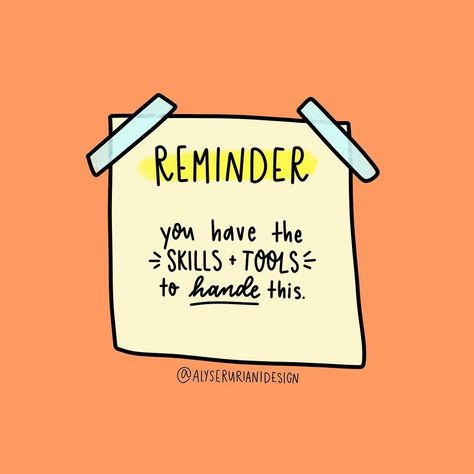 REMINDER
you have the
SKILLS + TOOLS
to hande this.
@ALYSERURIANIDESIGN